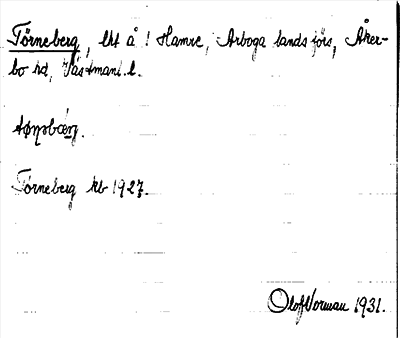 Törneberg, lht å 1 Hamre, Arboga landsförs, Åker-
bo hd, Västmanl. l.
tø̨ṇəbærj.
Törneberg kb 1927.
Olof Norman 1931.